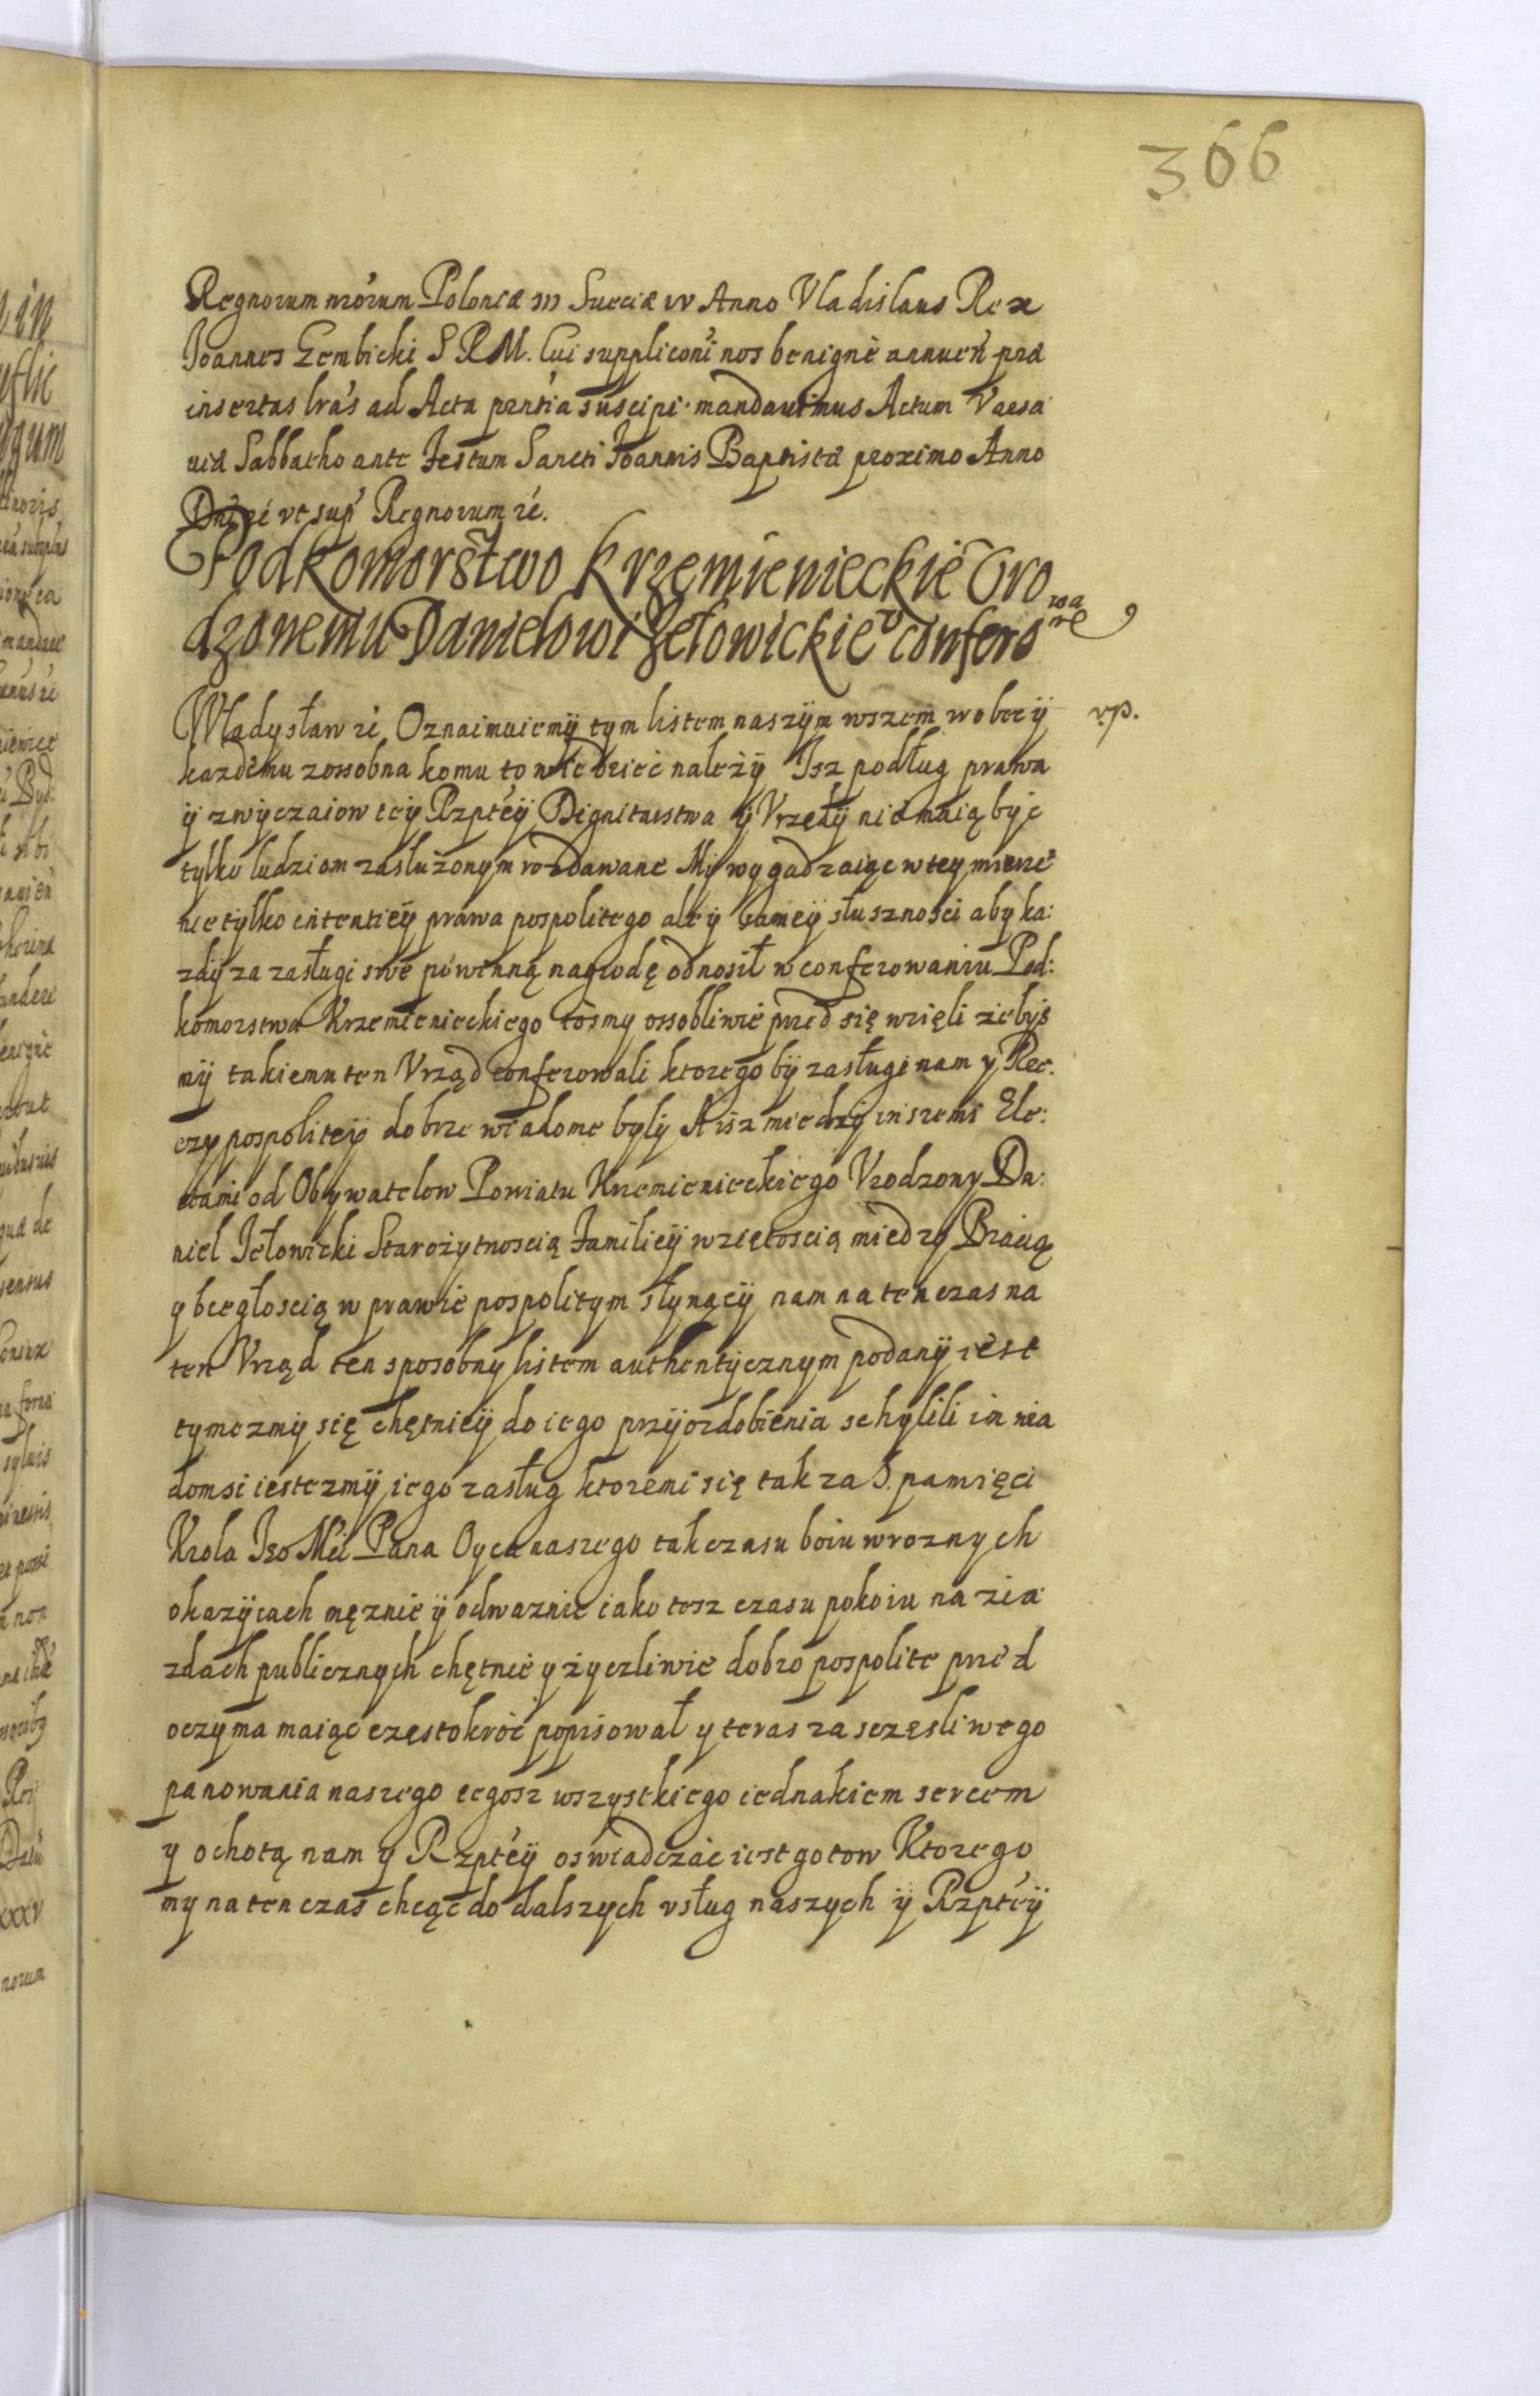 366
Regnorum nrórum Poloniæ III Sueciæ IV Anno Vladislaus Rex
Joannes Gembicki S R M. Cui suppliconi nos benignè annuen præ
insertas lrás ad Acta pentia suscipi mandavimus Actum Varsa
viæ Sabbatho ante Festum Sancti Joannis Baptistæ proximo Anno
Dni ré vt sup Regnorum ré.
Podkomorstwo Krzemienieckie Uro
dzonemu Danielowi Jełowickieo confero
wane
Władysław ré, Oznaimuiemÿ tym listem naszÿm wszem wobec ÿ
r.p.
każdemu zossobna komu to wiedzieć należÿ Isz podług prawa
ÿ zwÿczaiow teÿ Rzptéÿ Dignitarstwa ÿ Vrzędÿ nie maią bÿc
tylko ludziom zasłużonym rozdawane Mÿ wygadzaiąc w tey mierze
nie tylko intentieÿ prawa pospolitego ale ÿ sameÿ słusznosci aby ka:
zdÿ za zasługi swe powinną nagrodę odnosił w conferowaniu Pod:
komorstwa Krzemienieckiego tosmy ossobliwie przed się wzięli żebÿs
mÿ takiemu ten Vrząd conferowali ktorego bÿ zasługi nam y Rze.
czy pospoliteÿ dobrze wiadome bylÿ A isz miedzÿ inszemi Ele:
ctami od Obywatelow Powiatu Krzemienieckiego Vrodzony Da:
niel Jełowicki Starożytnoscią Familieÿ wziętoscią miedzy Bracią
y biegłoscią w prawie pospolitym słynącÿ nam na ten czas na
ten Vrząd ten sposobny listem authentÿcznym podanÿ iest
tymczmy się chętnieÿ do iego przÿozdobienia schylili im wia
domsi iestezmÿ iego zasług ktoremi się tak za S. pamięci
Krola Iego Mci Pana Oyca naszego tak czasu boiu w roznych
okazÿcach męznie ÿ odwaznie iako tesz czasu pokoiu na zia
zdach publicznych chętnie y życzliwie dobro pospolite przed
oczyma maiąc częstokróć popisował y teras za sczęsliwego
panowania naszego tegosz wszystkiego iednakiem sercem
y ochotą nam y Rzptéÿ oswiadczać iest gotow Ktorego
my na ten czas chcąc do dalszych vsług naszych ÿ Rzptéÿ